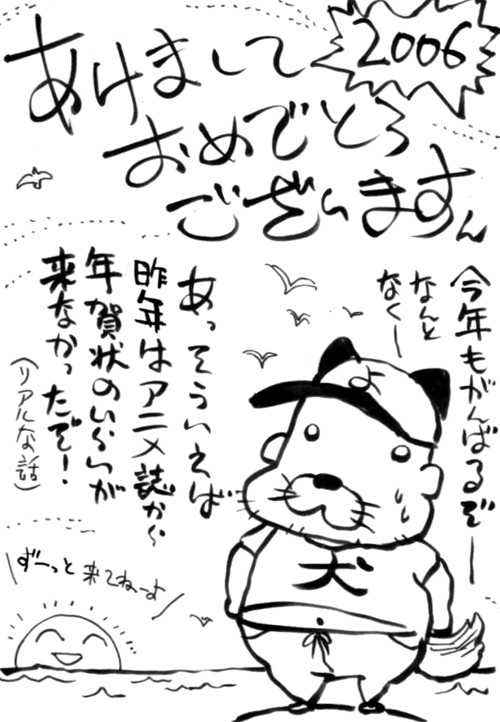 2006
あけまして
おめでとう
ございますん
今年もがんばるぞー
なんと
なくー
あっそういえば
昨年はアニメ誌から
年賀状のいらいが
来なかったぞ!
(リアルな話)
よ
犬
ずーっと来てねーよ